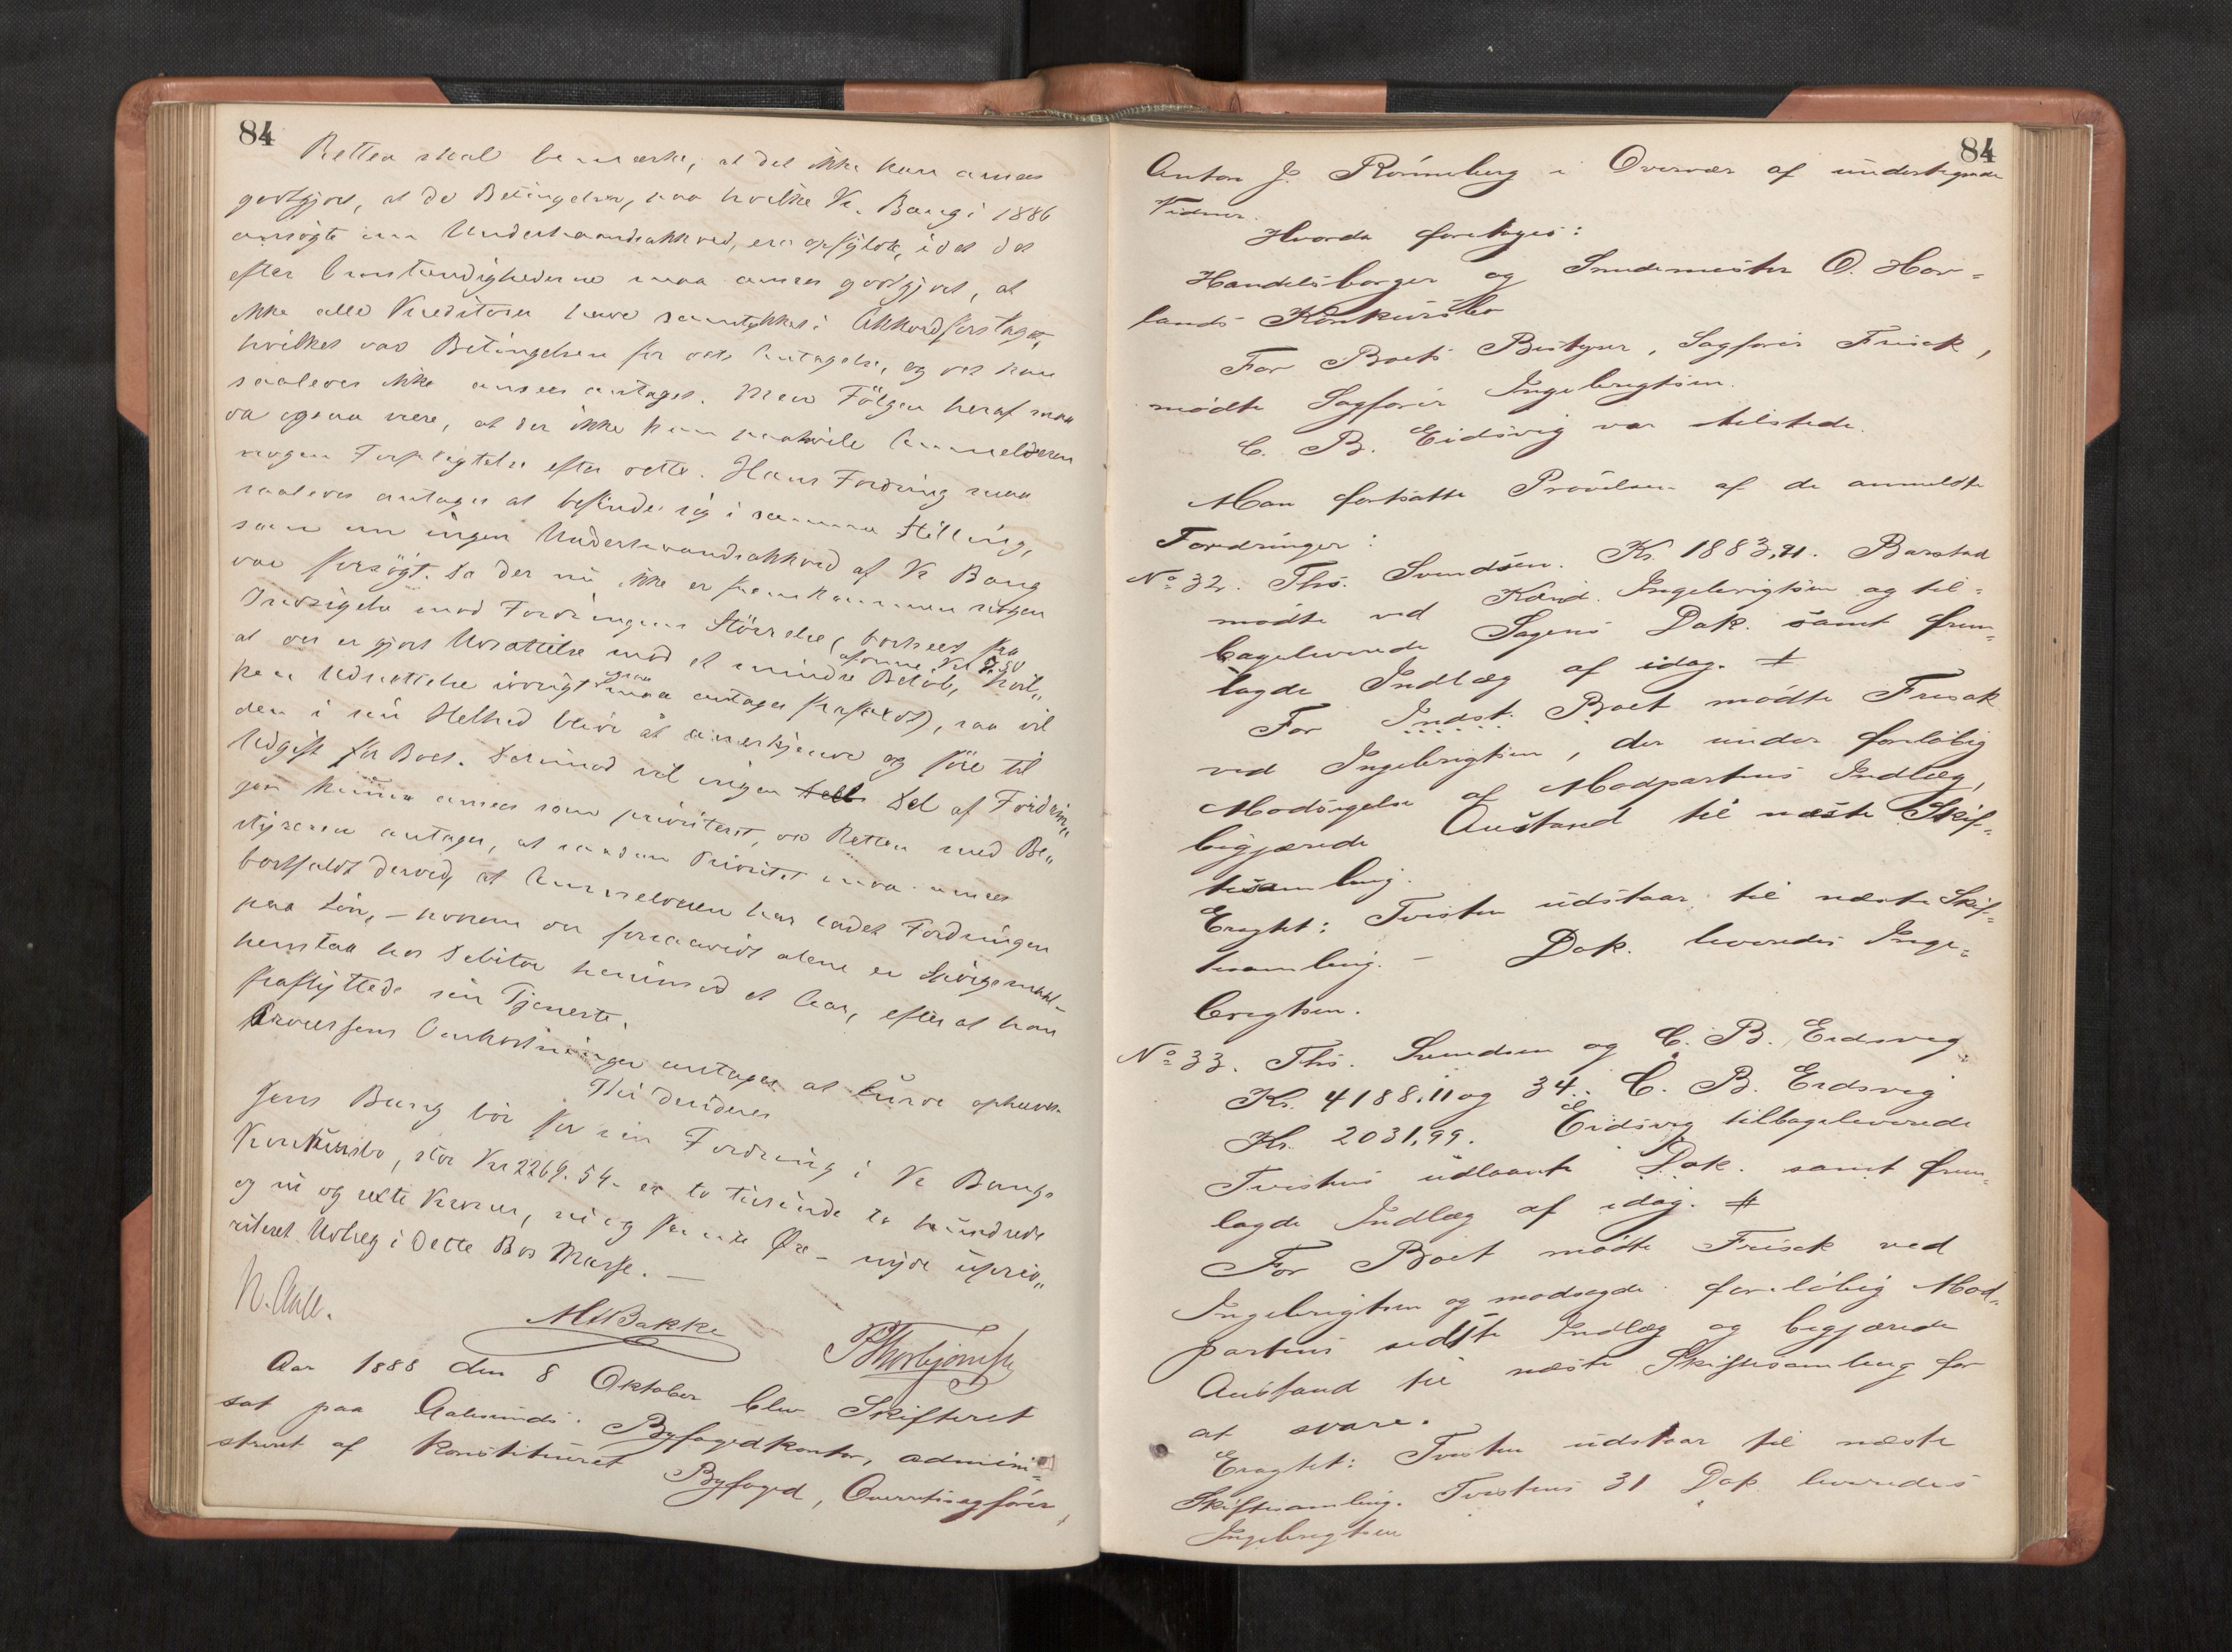 84
Retten skal bemærke, at det ikke kan ansees
godtgjort, at de Betingelser, paa hvilke K. Bang i 1886
ansøgte om Underhaandsakkord, ere opfyldte, idet det
efter Omstændighederne maa ansees godtgjort, at
ikke alle Kreditorer have samtykket i Akkordforslaget,
hvilket var Betingelsen for dets Antagelse, og det kan
saaledes ikke ansees antaget. Men Følgen heraf maa
da ogsaa være, at der ikke kan paahvile Anmelderen
nogen Forpligtelse efter dette. Hans Fordring maa
saaledes antages at befinde sig i samme Stilling,
som om ingen Underhaandsakkord af K Bang
var forsøgt. Da der nu ikke er fremkommen nogen
Indsigelse mod Fordringens Størrelse (bortseet fra
at der er gjort Udsættelse mod et mindre Beløb, hvil"
ken Udsættelse iøvrigt ogsaa maa antages frafaldt), saa vil
den i sin Helhed blive at anerkjende og føre til
Udgift for Boet. Derimod vil ingen Del af Fordrin"
gen kunne ansees som prioriteret, da Retten med Be"
styreren antager, at saadan Prioritet maa ansees
bortfaldt derved, at Anmelderen har ladet Fordringen
paa Løn, – hvorom der forsaavidt alene er Spørgsmaal –
henstaa hos Debitor henimod et Aar, efter at han
fraflyttede sin Tjeneste.
Processens Omkostninger antages at burde ophæves.
Thi decideres
Jens Bang bør for sin Fordring i K Bangs
Konkursbo, stor Kr 2269.54 – er to tusinde to hundrede
og ni og sexti Kroner, fire og femti Øre – nyde uprio"
riteret Udlæg i dette Bos Masse. –
N. Aall.
M Bakke
P Thorbjørnsen
Aar 1888 den 8 Oktober blev Skifteret
sat paa Aalesunds Byfogedkontor, admini=
streret af konstitueret Byfoged, Overretssagfører,
84
Anton J. Rønneberg i Overvær af undertegnede
Vidner.
Hvorda foretoges:
Handelsborger og Smedemester O. Hov=
lands Konkursbo
For Boets Bestyrer, Sagfører Frisak,
mødte Sagfører Ingebrigtsen.
C. B. Eidsvig var tilstede.
Man fortsatte Prøvelsen af de anmeldte
Fordringer:
No 32. Ths. Svendsen. Kr. 1883,21. Barstad
mødte ved Kand. Ingebrigtsen og til=
bageleverede Sagens Dok. samt frem=
lagde Indlæg af idag. ‡
For Indst. Boet mødte Frisak
ved Ingebrigtsen, der under foreløbig
Modsigelse af Modpartens Indlæg,
begjærede Anstand til næste Skif=
tesamling.
Eragtet: Tvisten udstaar til næste Skif=
tesamling. – Dok. leveredes Inge=
brigtsen.
No 33. Ths. Svendsen og C. B. Eidsvig
Kr. 4188.11 og 34. C. B. Eidsvig
Kr. 2031,99. Eidsvig tilbageleverede
Tvistens udlaante Dok. samt frem=
lagde Indlæg af idag. ‡
For Boet mødte Frisak ved
Ingebrigtsen og modsagde foreløbig Mod=
partens sidste Indlæg og begjærede
Anstand til næste Skiftesamling for
at svare.
Eragtet: Tvisten udstaar til næste
Skiftesamling. Tvistens 31 Dok leveredes
Ingebrigtsen